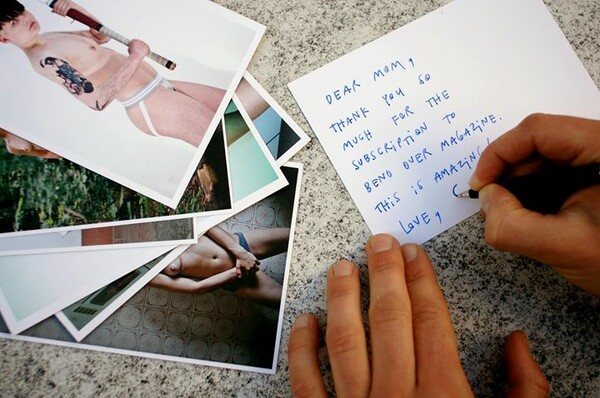 DEAR MOM,
THANK YOU SO
MUCH FOR THE
SUBSCRIPTION TO
BEND OVER MAGAZINE.
THIS IS AMAZING!
LOVE,